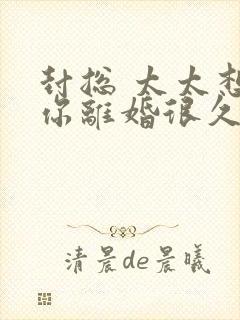 封总 太太想
你離婚很久
清晨de晨曦